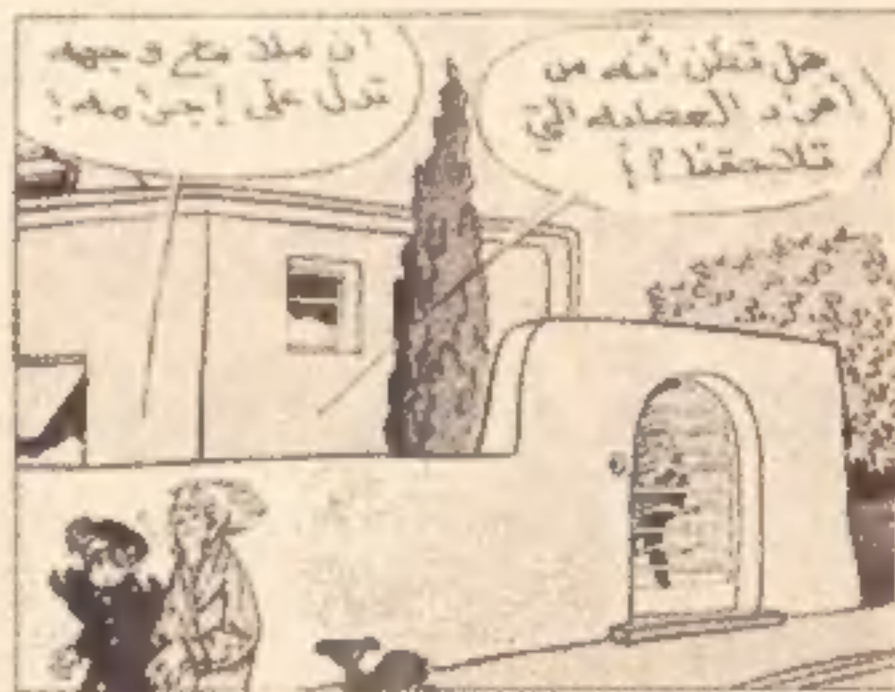 هل تظن أنه من
أفراد العصابه التي
تلاحقنا؟!
ان ملامح وجهه
تدل على إجرامه!